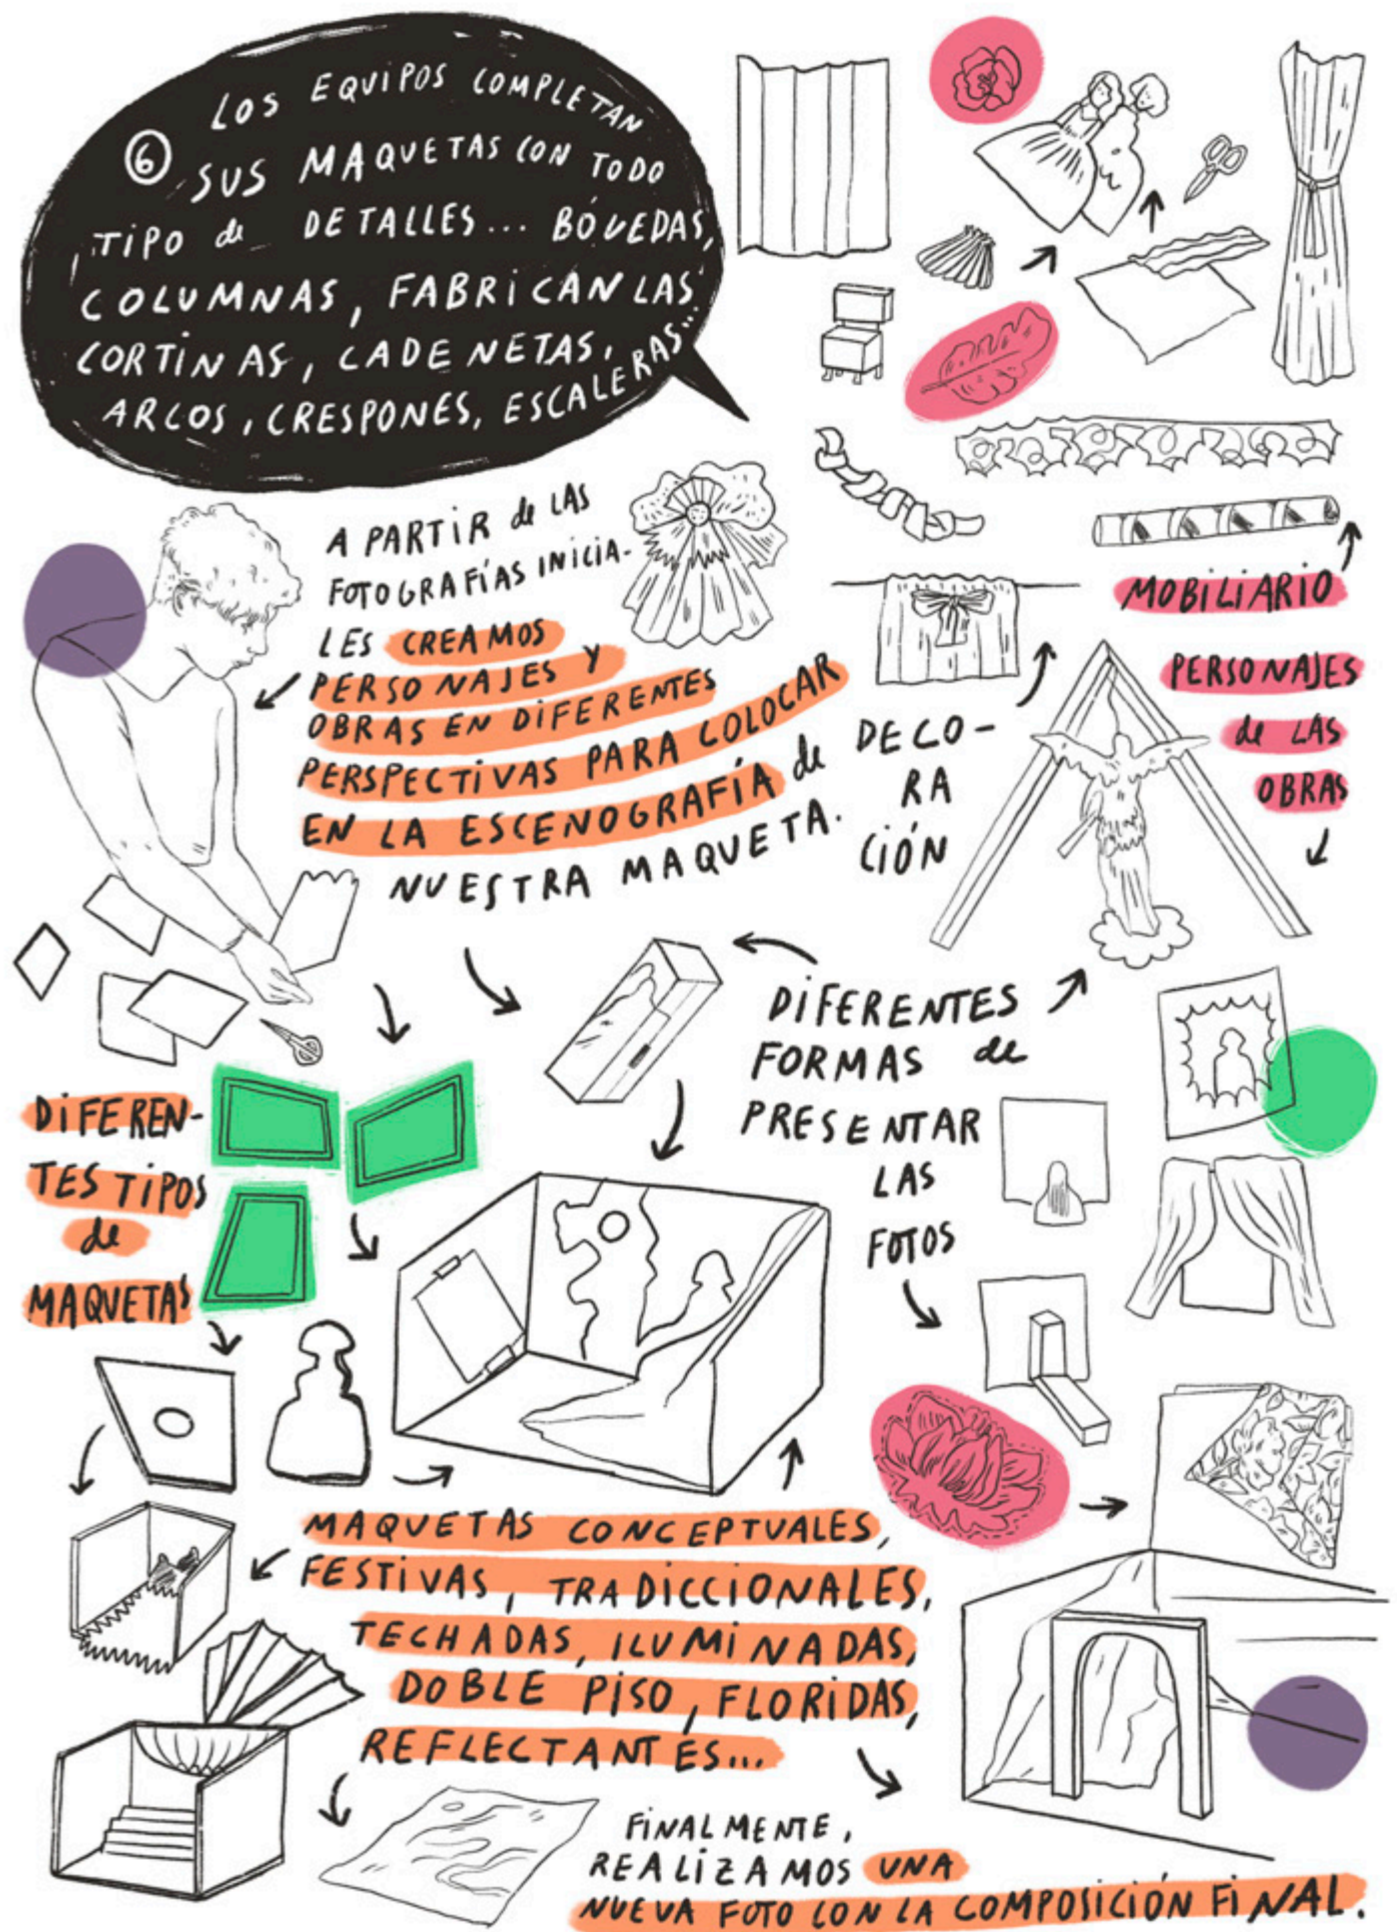 LOS EQUIPOS COMPLETAN
6 SUS MAQUETAS CON TODO
TIPO de DETALLES... BÓVEDAS,
COLUMNAS, FABRICAN LAS
CORTINAS, CADENETAS,
ARCOS, CRESPONES, ESCALERAS...
A PARTIR de LAS
FOTOGRAFÍAS INICIA-
LES CREAMOS
PERSONAJES Y
OBRAS EN DIFERENTES
PERSPECTIVAS PARA COLOCAR
EN LA ESCENOGRAFÍA de
NUESTRA MAQUETA.
MOBILIARIO
PERSONAJES
de LAS
OBRAS
DECO-
RA
CIÓN
DIFERENTES
FORMAS de
PRESENTAR
LAS
FOTOS
DIFEREN-
TES TIPOS
de
MAQUETAS
MAQUETAS CONCEPTUALES,
FESTIVAS, TRADICCIONALES,
TECHADAS, ILUMINADAS,
DOBLE PISO, FLORIDAS,
REFLECTANTES...
FINALMENTE,
REALIZAMOS UNA
NUEVA FOTO CON LA COMPOSICIÓN FINAL.